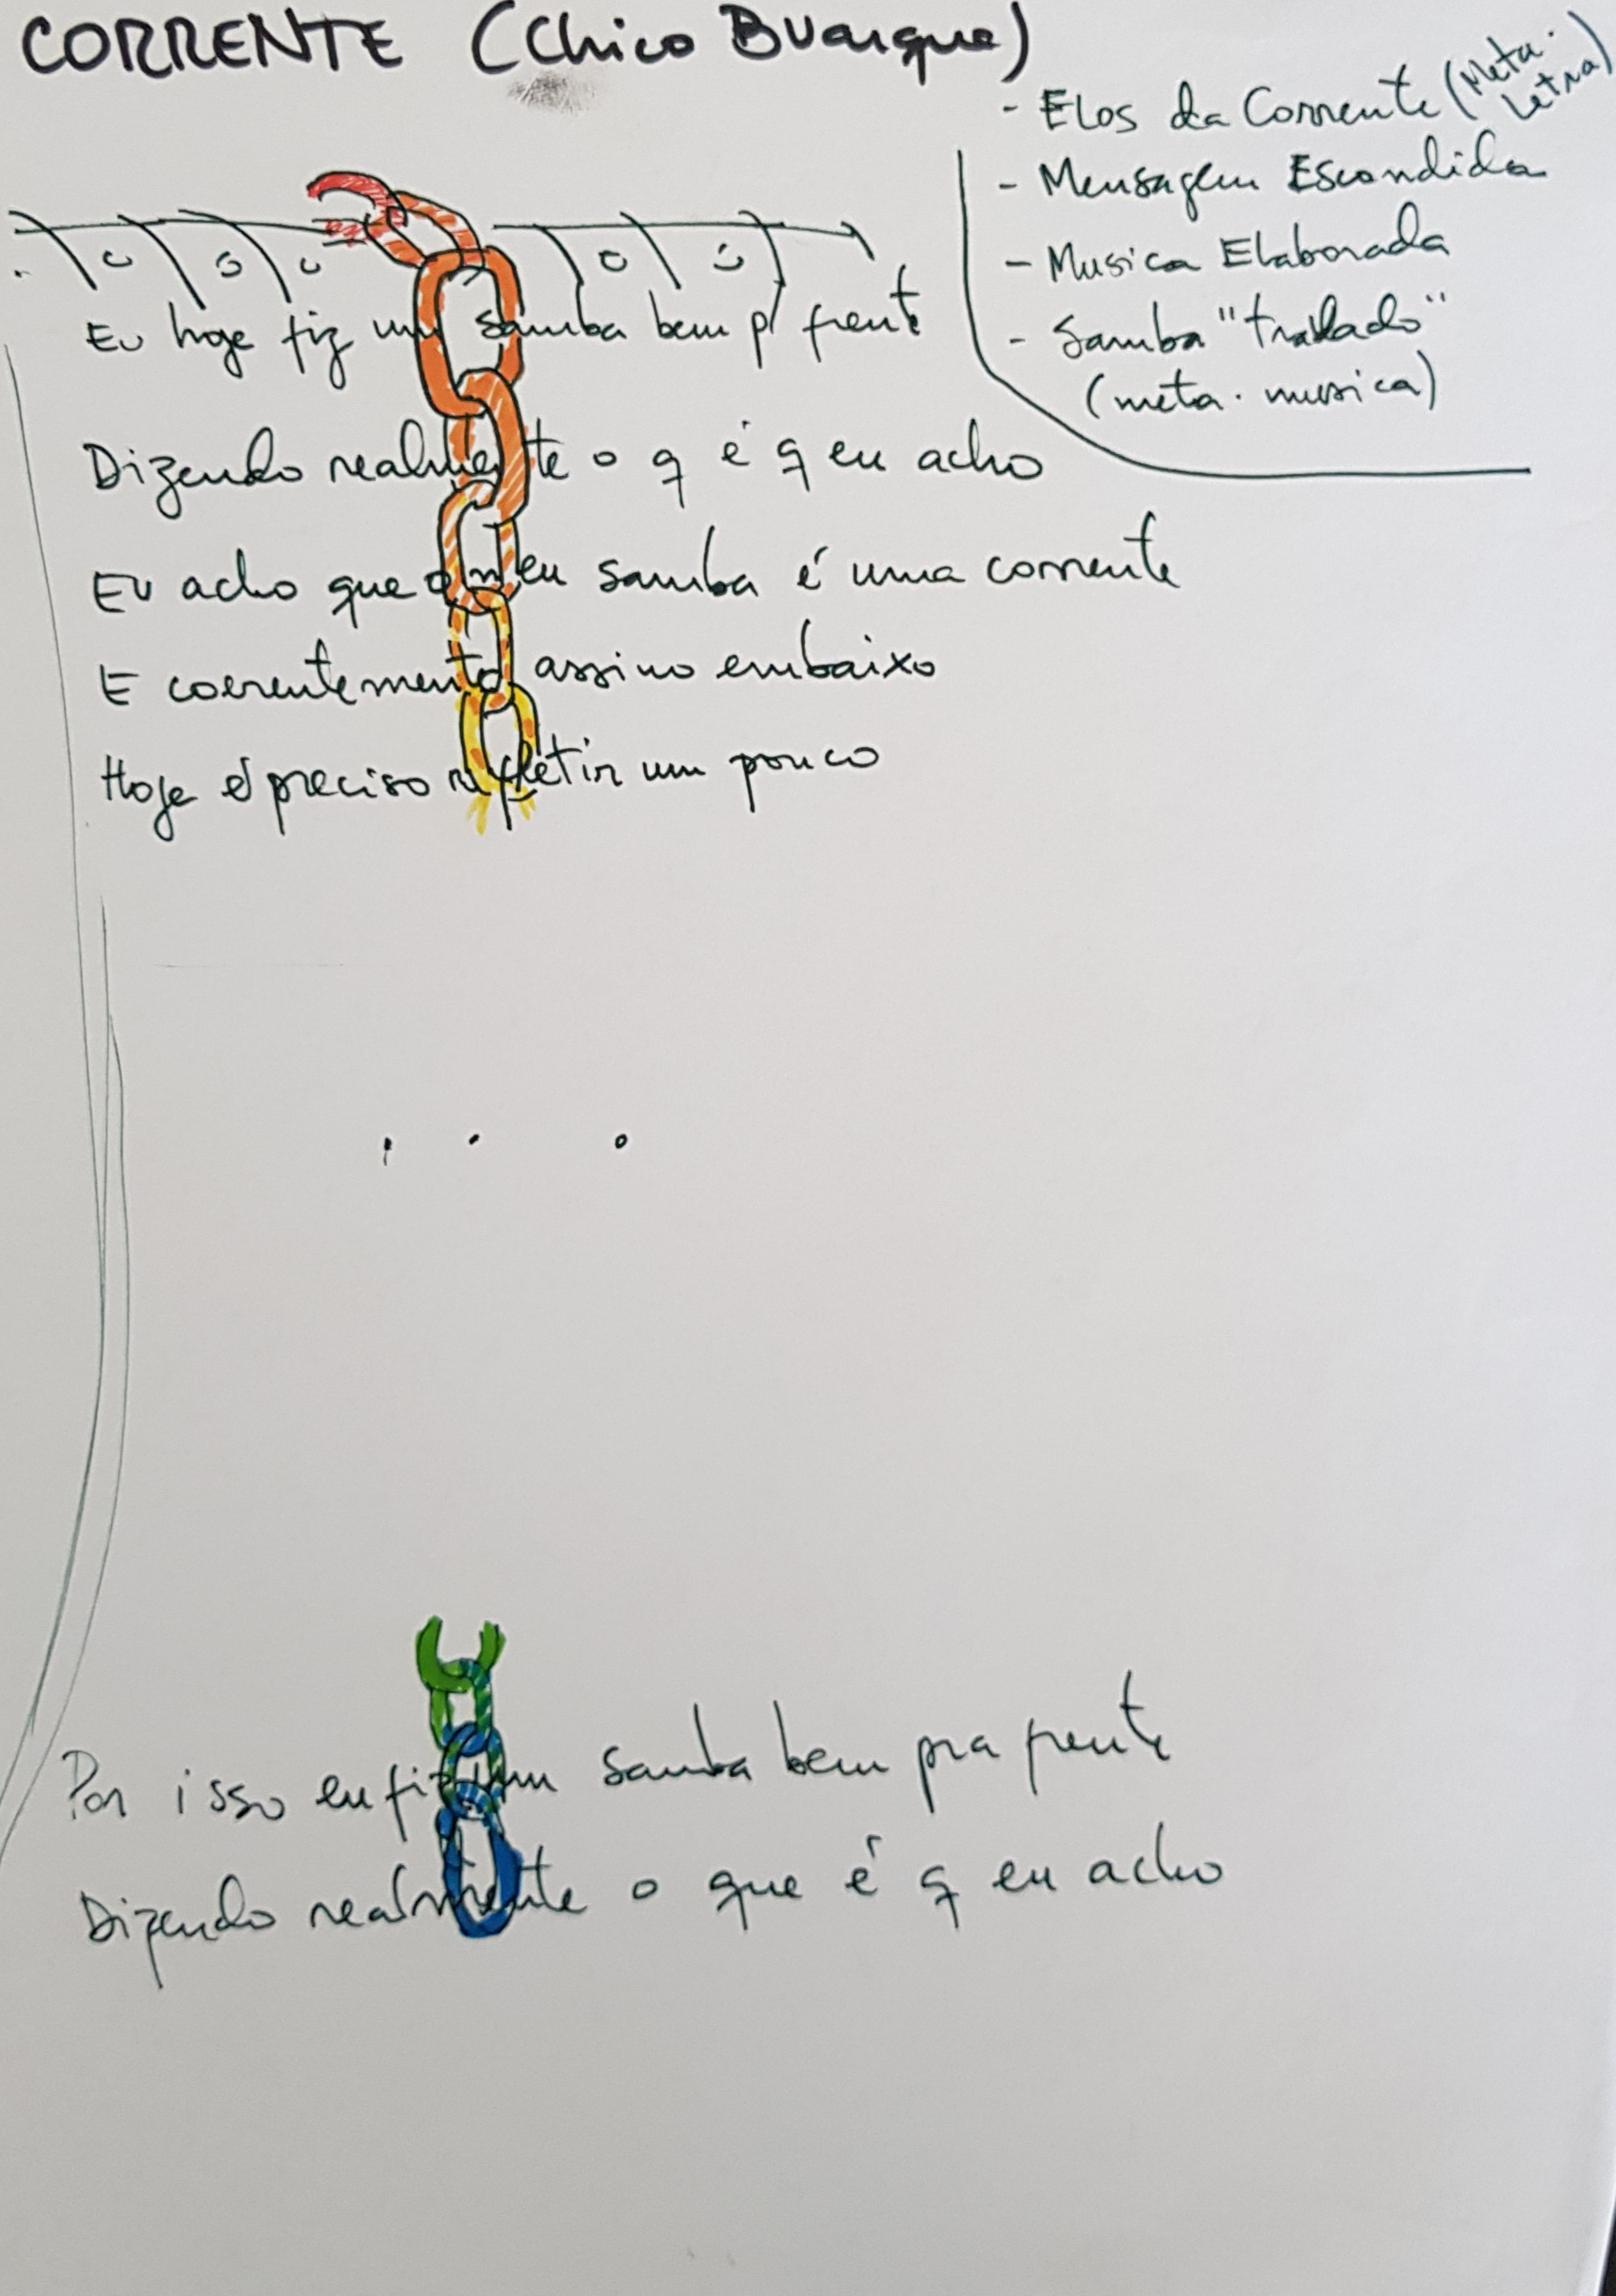 CORRENTE (Chico Buarque)
- Elos da Corrente (Meta-Letra)
- Mensagem Escondida
- Musica Elaborada
- Samba "travado"
(meta-musica)
Eu hoje fiz um samba bem p/ frente
Dizendo realmente o q é q eu acho
Eu acho que o meu samba é uma corrente
E coerentemente assino embaixo
Hoje é preciso refletir um pouco
. . .
Por isso eu fiz um samba bem pra frente
Dizendo realmente o que é q eu acho